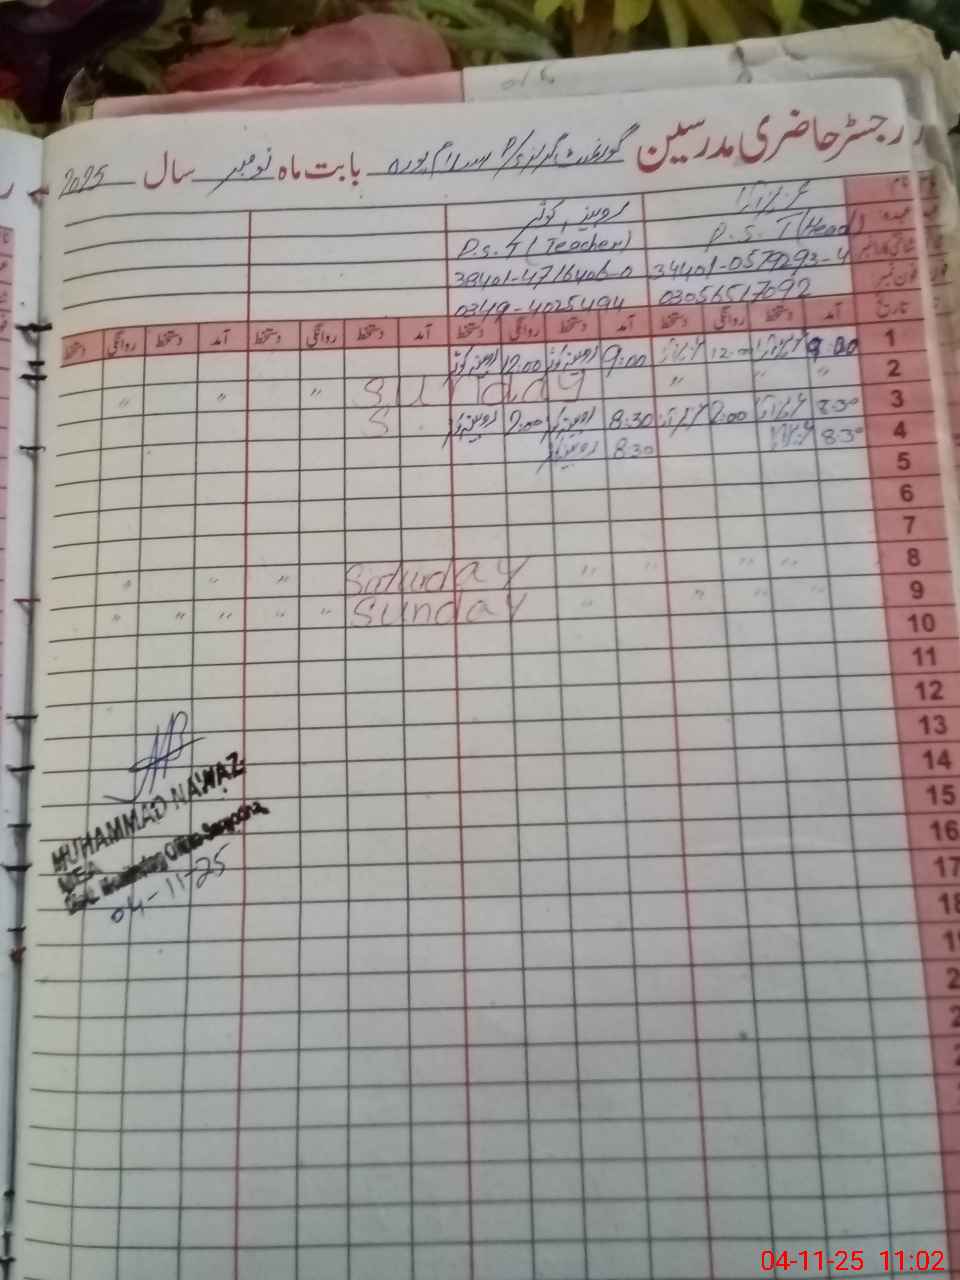 رجسٹر حاضری مدرسین گورنمنٹ گرلز پ/س اسلام پورہ بابت ماہ نومبر سال 2025
روبینہ کوثر
P.S.T (Head) P.S.T (Teacher)
34401-0579293-4 38401-4716406-0
03056517092 0349-4025494
تاریخ آمد دستخط روانگی دستخط آمد دستخط روانگی دستخط آمد دستخط روانگی دستخط آمد دستخط روانگی دستخط
1 9:00 12:00 9:00 روبینہ کوثر 12:00 روبینہ کوثر
2 " " " Sunday " " "
3 8:30 2:00 8:30 روبینہ کوثر 2:00 روبینہ کوثر S
4 8:30 8:30 روبینہ کوثر
5
6
7
8 " " " " Saturday " " "
9 " " " " Sunday " " " " "
10
11
12
13
14
15
16
17
18
MUHAMMAD NAWAZ
MEA
04-11-25
04-11-25 11:02